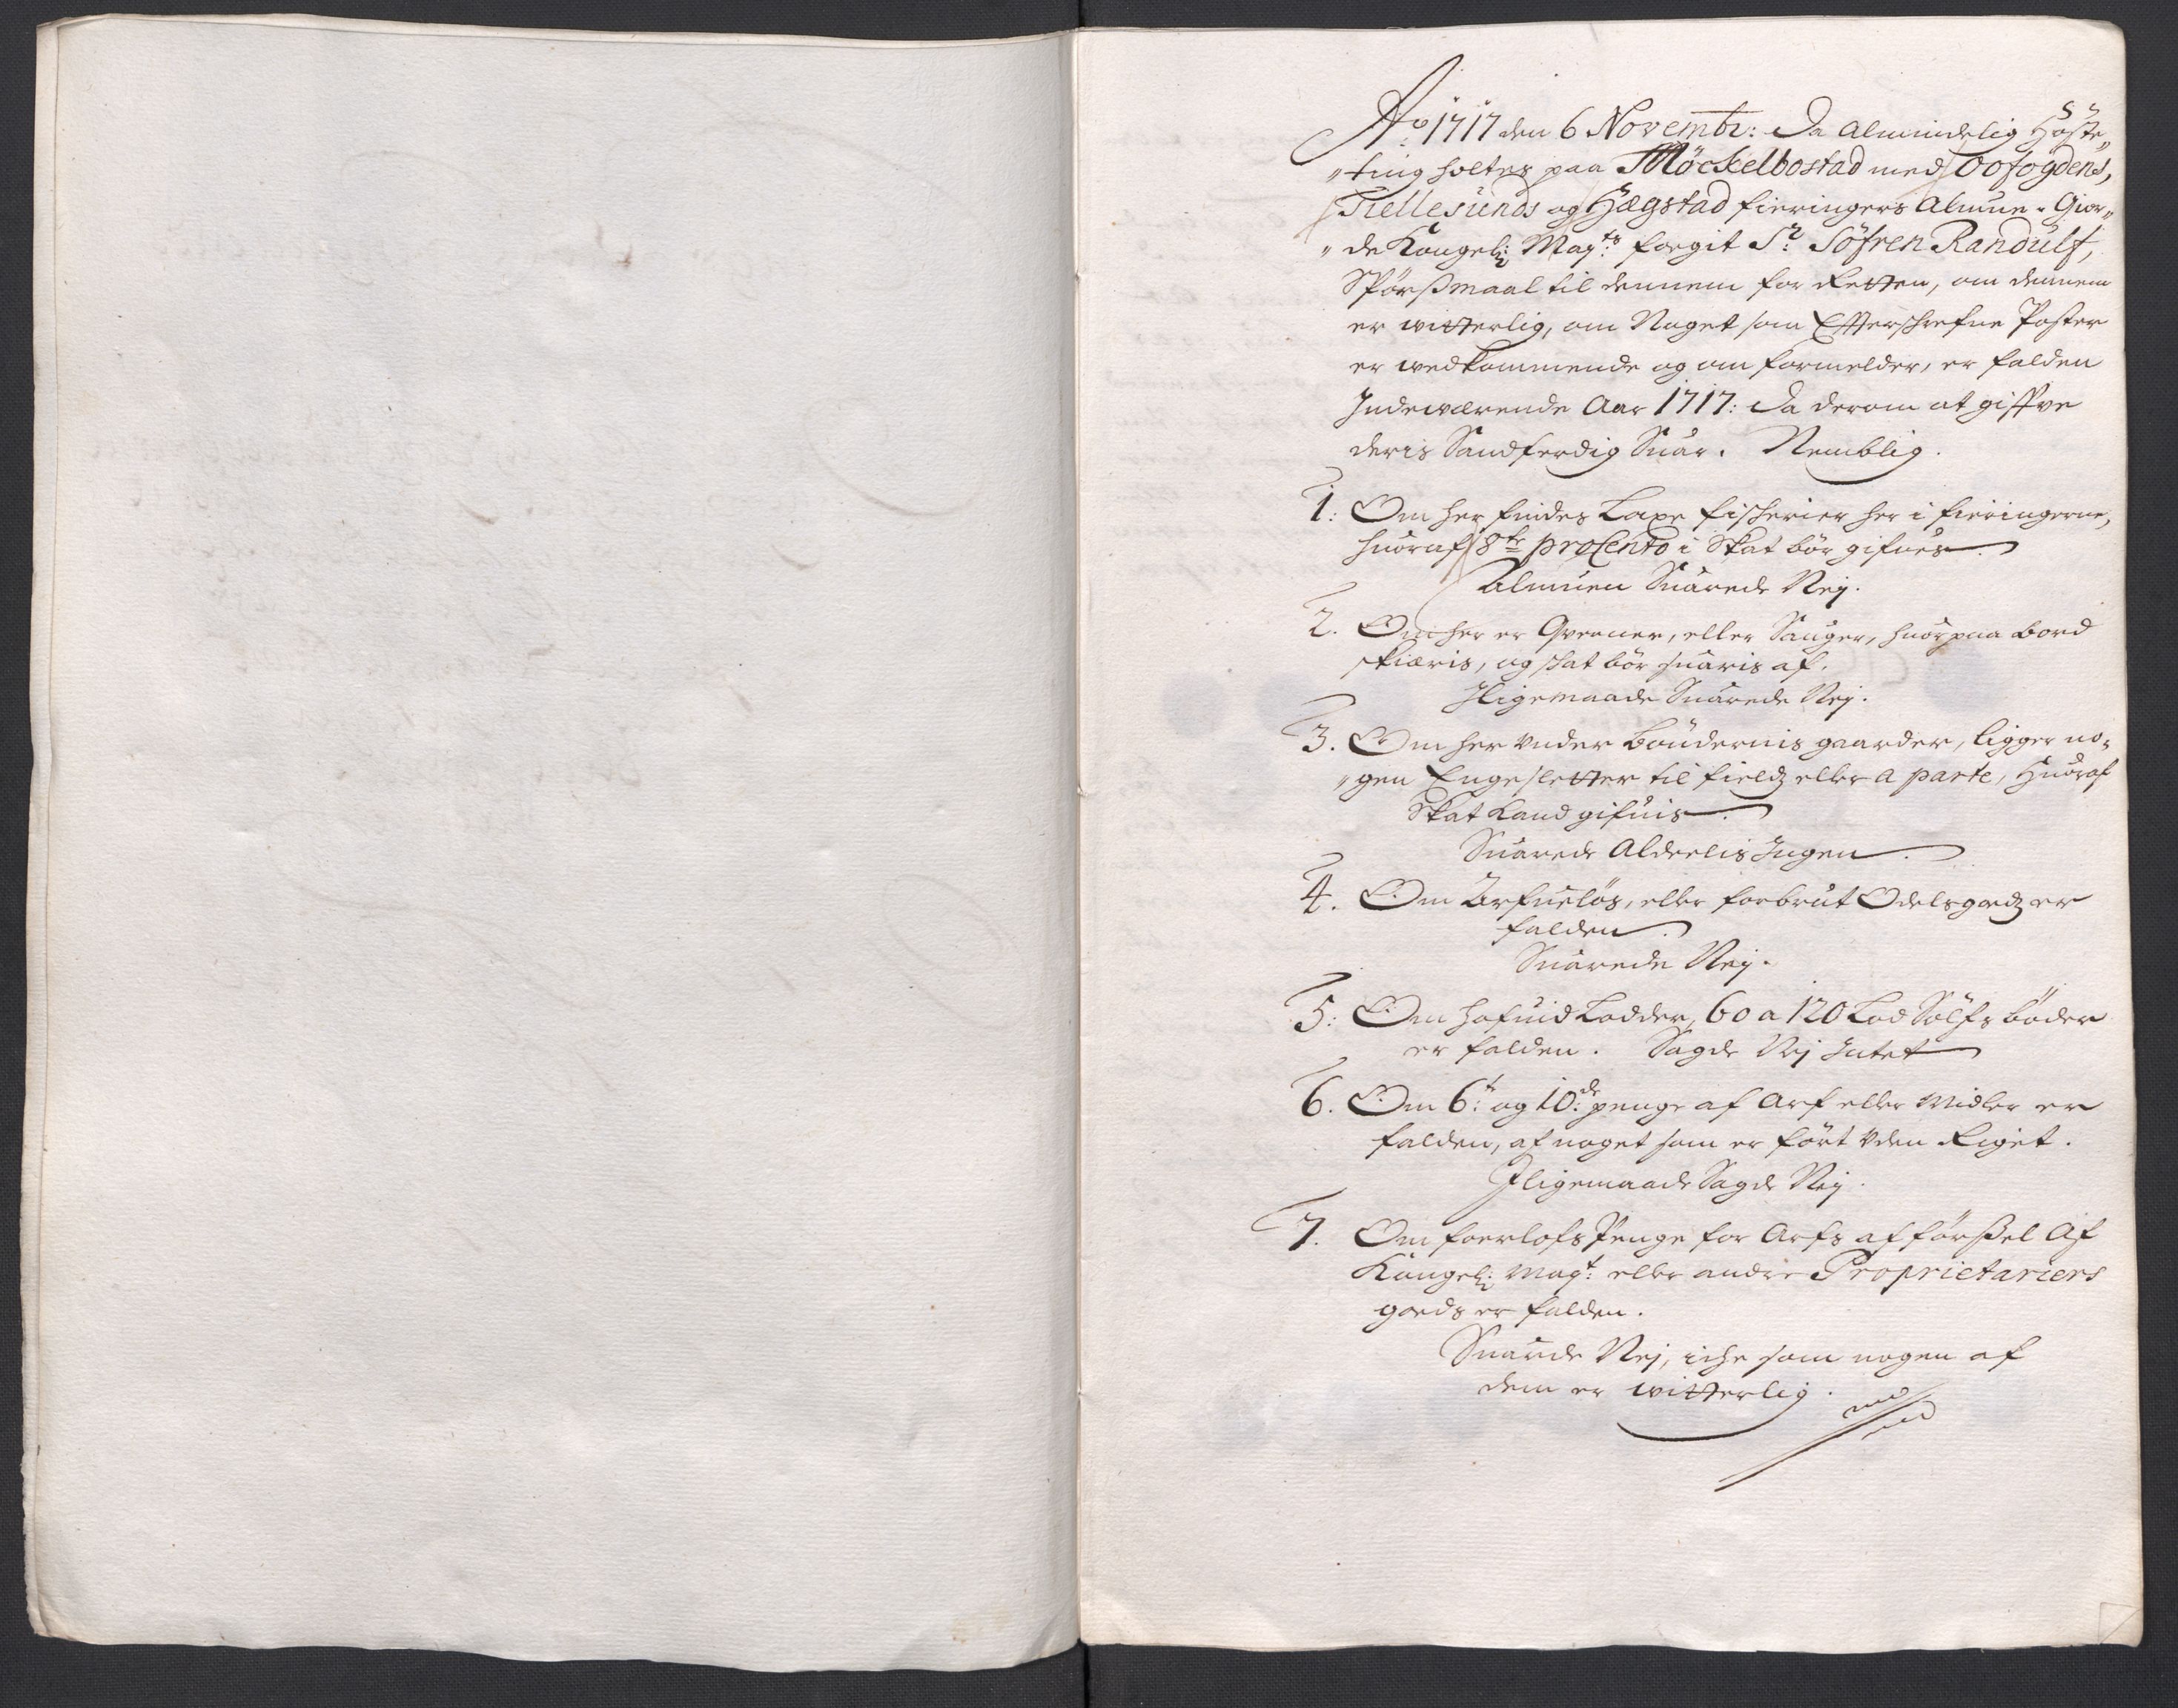 Ao 1717 den 6 Novembr: Da Almindelig Höste„
„ting holtes paa Möckelbostad med Oofogdens,
Tiellesunds og Hægstad fieringers Almue. Gior„
„de Kongel: Mayts: fogit Sr Söfren Randulf,
Spörsmaal til dennem for Retten, om dennem
er witterlig, om Noget som Effterschrefne Poster
er wedkommende og om formelder, er falden
Indeværende Aar 1717: Da derom at giffve
deris Sandferdig Suar. Nemblig.
1: Om her findes Laxe fischerier her i fieringerne,
huoraf 8te proCento i Skat bör gifues.
Almuen Suarede Nej.
2. Om her er Qverner, eller Sauger, huorpaa bord
skiæris, og skat bör suaris af.
Iligemaade Suarede Nej.
3. Om her under böndernis gaarder, ligger no„
„gen Engesletter til fields eller a parte, Huoraf
Skat kand gifuis.
Suarede Alderlis Ingen.
4. Om Arfueløs, eller forbrut Odelsgodz er
falden.
Suarede Nej.
5: Om hofuid Lodder, 60 a 120 Lod Sölfs böder
er falden. Sagde Nej Intet
6. Om 6t: og 10de: penge af Arf eller Midler er
falden, af noget som er fört uden Riget.
Iligemaade Sagde Nej.
7. Om foerlofs Penge for Arfs afförßel Af
Kongel: Mayt: eller andre Proprietariers
gods er falden.
Suarde Nej, iche som nogen af
dem er witterlig.